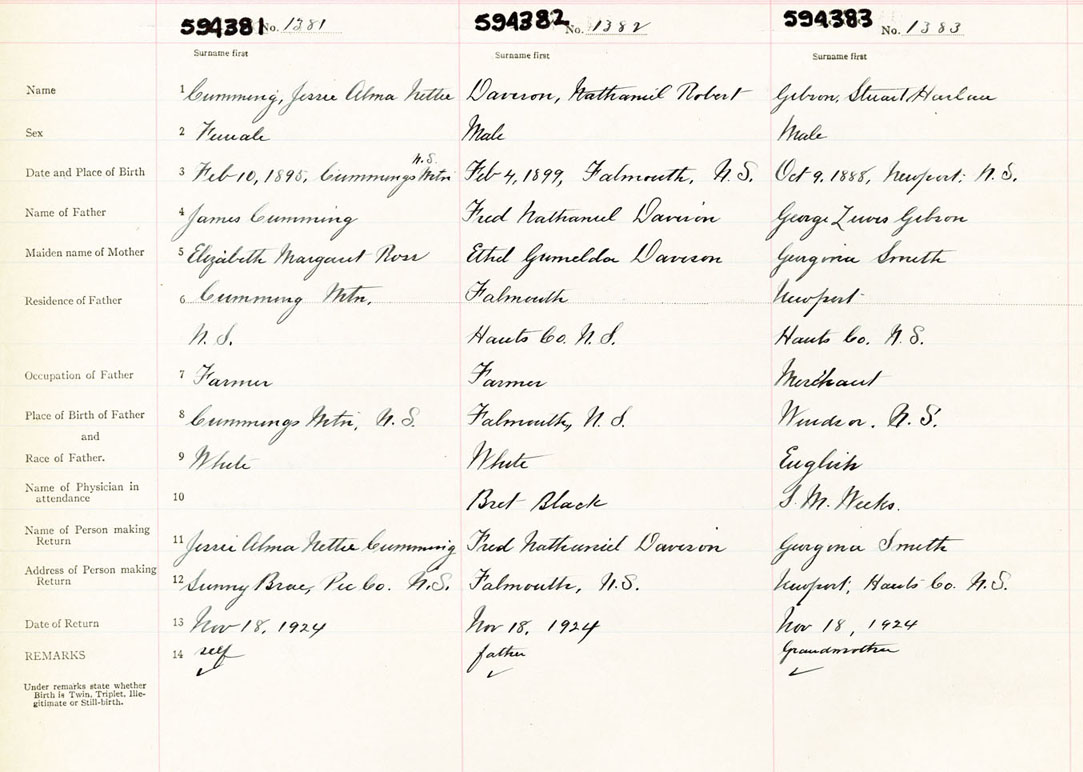 594381 No. 1381 594382 No. 1382 594383 No. 1383
Surname first Surname first Surname first
Name 1 Cumming, Jessie Alma Nettie Davison, Nathaniel Robert Gibson, Stuart Harlan
Sex 2 Female Male Male
N.S.
Date and Place of Birth 3 Feb 10, 1895, Cummings Mtn Feb 4, 1899, Falmouth, N.S. Oct 9, 1888, Newport, N.S.
Name of Father 4 James Cumming Fred Nathaniel Davison George Lewis Gibson
Maiden name of Mother 5 Elizabeth Margaret Ross Ethel Davison Georgina Smith
Residence of Father 6 Cumming Mtn, Falmouth Newport
N.S. Hants Co. N.S. Hants Co. N.S.
Occupation of Father 7 Farmer Farmer Merchant
Place of Birth of Father 8 Cummings Mtn, N.S. Falmouth, N.S. Windsor, N.S.
and
Race of Father. 9 White White English
Name of Physician in
attendance 10 Bret Black S. M. Weeks.
Name of Person making
Return 11 Jessie Alma Nettie Cumming Fred Nathaniel Davison Georgina Smith
Address of Person making
Return 12 Sunny Brae, Pic Co. N.S. Falmouth, N.S. Newport, Hants Co. N.S.
Date of Return 13 Nov 18, 1924 Nov 18, 1924 Nov 18, 1924
REMARKS 14 self father Grandmother
Under remarks state whether
Birth is Twin, Triplet, Ille-
gitimate or Still-birth.